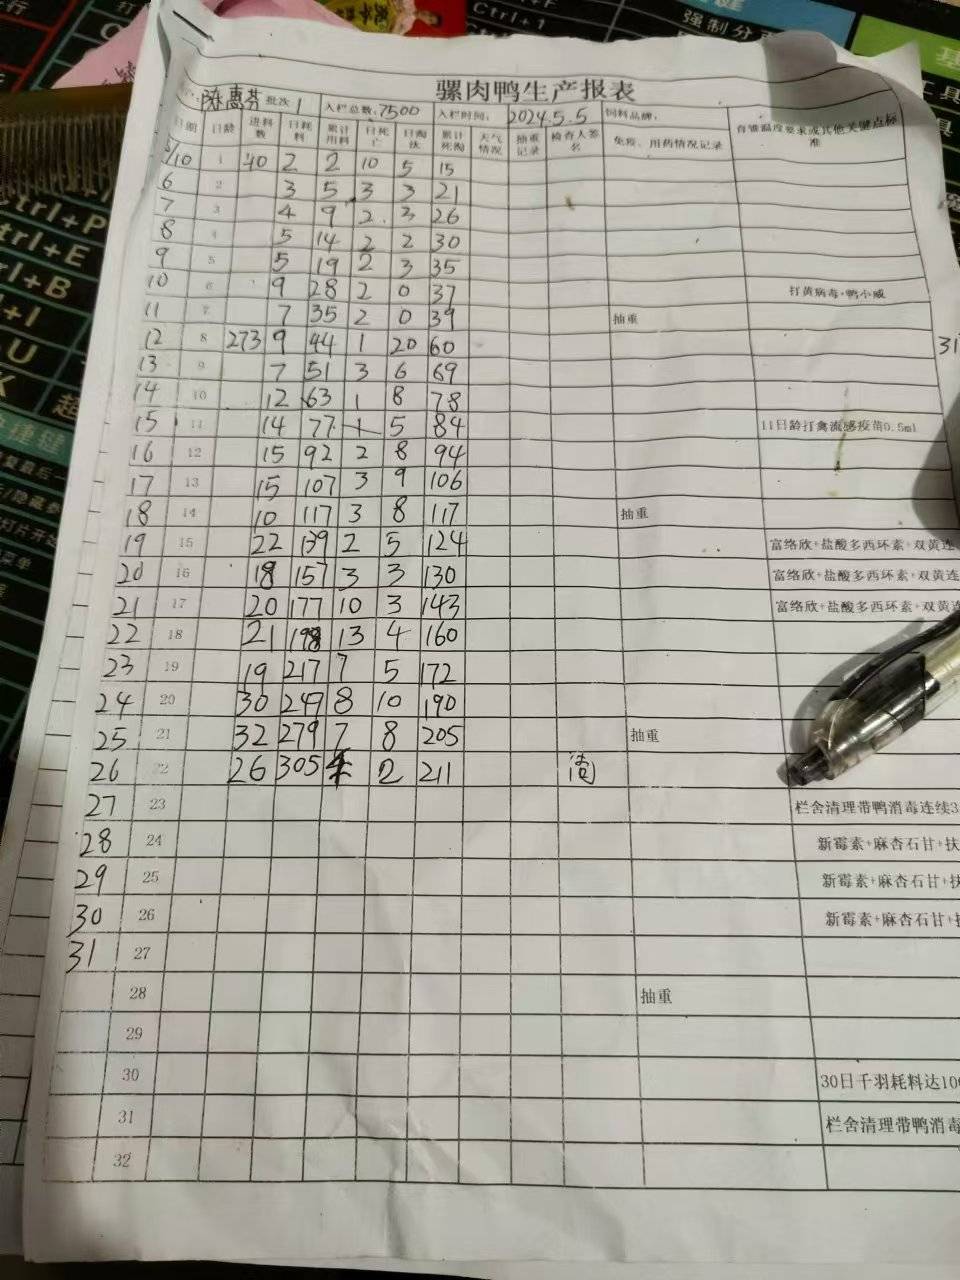 强制分页
Ctrl+1
骡肉鸭生产报表
陈惠芬 批次 1 入栏总数:7500 入栏时间: 2024.5.5 饲料品牌:
日期 日龄 进料数 日耗料 累计用料 日死亡 日淘汰 累计死淘 天气情况 抽重记录 检查人签名 免疫、用药情况记录 育雏温度要求或其他关键点标准
5/10 1 40 2 2 10 5 15
6 2 3 5 3 3 21
7 3 4 9 2 3 26
8 4 5 14 2 2 30
9 5 5 19 2 3 35
10 6 9 28 2 0 37 打黄病毒+鸭小威
11 7 7 35 2 0 39 抽重
12 8 273 9 44 1 20 60
13 9 7 51 3 6 69
14 10 12 63 1 8 78
15 11 14 77 1 5 84 11日龄打禽流感疫苗0.5ml
16 12 15 92 2 8 94
17 13 15 107 3 9 106
18 14 10 117 3 8 117 抽重
19 15 22 139 2 5 124 富络欣+盐酸多西环素+双黄连
20 16 18 157 3 3 130 富络欣+盐酸多西环素+双黄连
21 17 20 177 10 3 143 富络欣+盐酸多西环素+双黄连
22 18 21 198 13 4 160
23 19 19 217 7 5 172
24 20 30 247 8 10 190
25 21 32 279 7 8 205 抽重
26 22 26 305 4 2 211
27 23 栏舍清理带鸭消毒连续3
28 24 新霉素+麻杏石甘+扶
29 25 新霉素+麻杏石甘+扶
30 26 新霉素+麻杏石甘+扶
31 27
28 抽重
29
30 30日千羽耗料达100
31 栏舍清理带鸭消毒
32